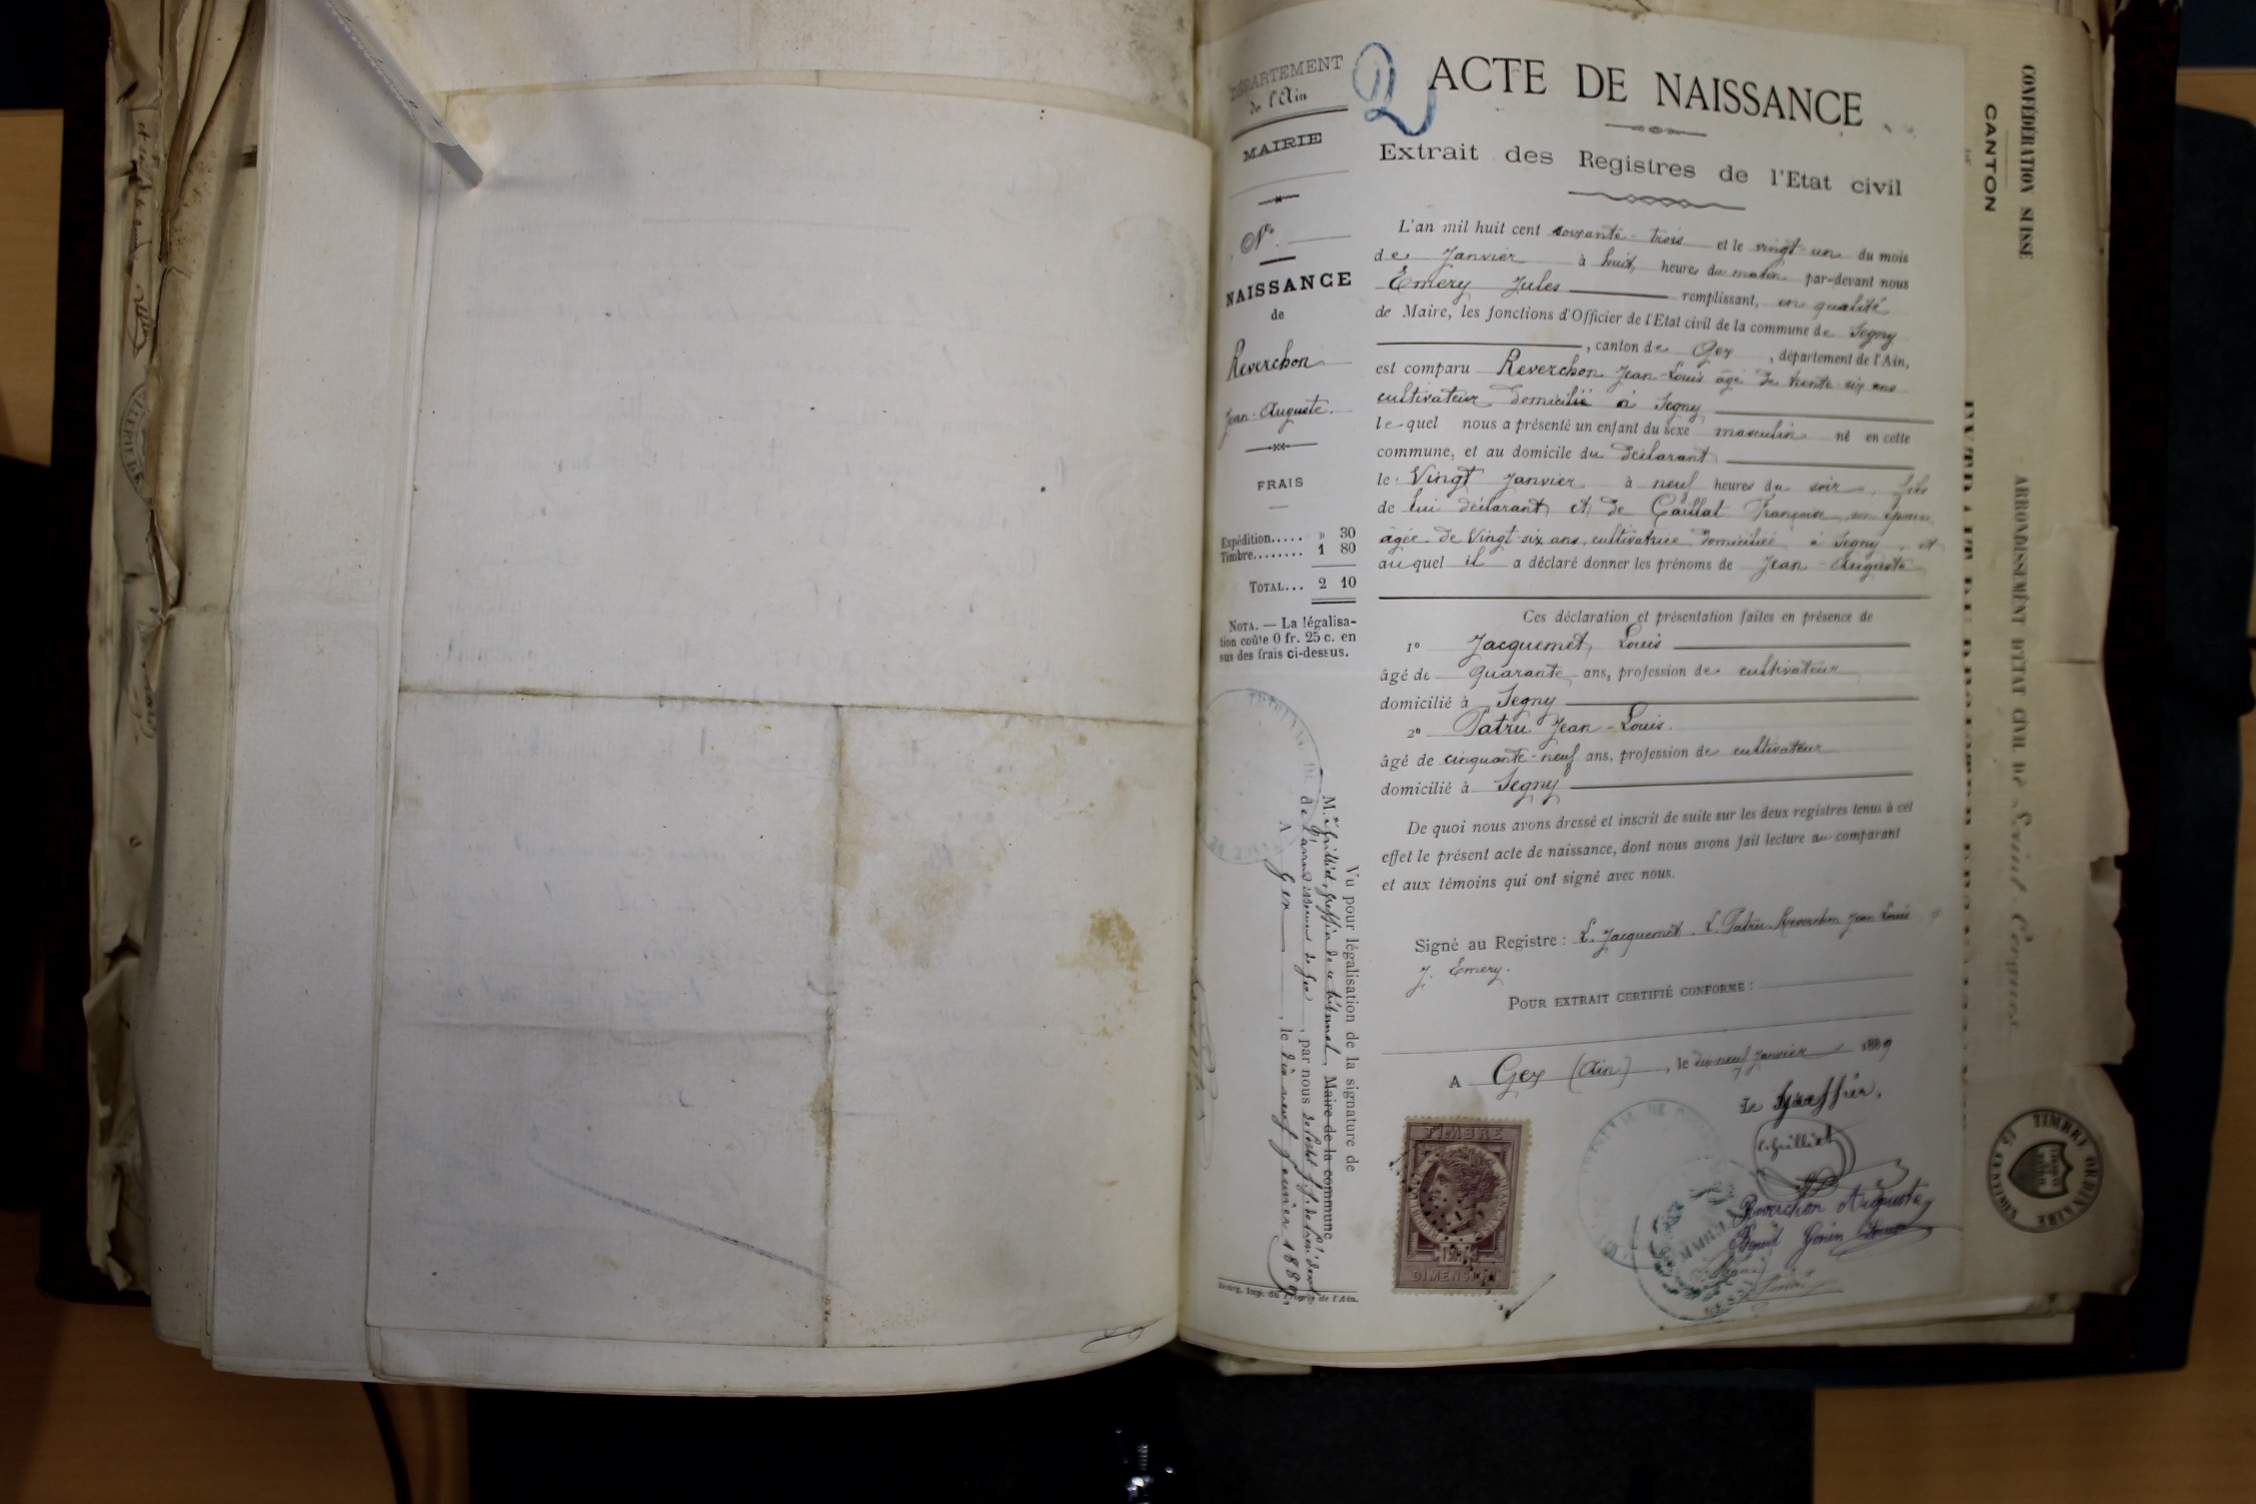 DÉPARTEMENT
de l'Ain
MAIRIE
N°
NAISSANCE
de
Reverchon
Jean-Auguste.
FRAIS
Expédition..... » 30
Timbre........ 1 80
TOTAL... 2 10
NOTA. — La légalisa-
tion coûte 0 fr. 25 c. en
sus des frais ci-dessus.
Vu pour légalisation de la signature de
M. Grilliet, greffier de ce tribunal, Maire de la commune
de l'arrondissement de Gex, par nous
A Gex, le dix neuf janvier 1889.
2
ACTE DE NAISSANCE
Extrait des Registres de l'Etat civil
L'an mil huit cent soixante-trois et le vingt-un du mois
de Janvier à huit heures du matin par-devant nous
Emery Jules remplissant, en qualité
de Maire, les fonctions d'Officier de l'Etat civil de la commune de Segny
, canton de Gex, département de l'Ain,
est comparu Reverchon Jean-Louis âgé de trente-six ans
cultivateur domicilié à Segny
lequel nous a présenté un enfant du sexe masculin né en cette
commune, et au domicile du déclarant
le Vingt Janvier à neuf heures du soir, fils
de lui déclarant et de Caillat Françoise son épouse
âgée de Vingt-six ans, cultivatrice domiciliée à Segny, et
auquel il a déclaré donner les prénoms de Jean-Auguste
Ces déclaration et présentation faites en présence de
1° Jacquemet Louis
âgé de quarante ans, profession de cultivateur
domicilié à Segny
2° Patru Jean-Louis.
âgé de cinquante-neuf ans, profession de cultivateur
domicilié à Segny
De quoi nous avons dressé et inscrit de suite sur les deux registres tenus à cet
effet le présent acte de naissance, dont nous avons fait lecture au comparant
et aux témoins qui ont signé avec nous.
Signé au Registre : L. Jacquemet. L. Patru Reverchon Jean Louis
J. Emery.
POUR EXTRAIT CERTIFIÉ CONFORME :
A Gex (Ain), le dix neuf Janvier 1889
Le Greffier,
Grilliet
TIMBRE
DIMENSION
Reverchon Auguste
Benoît Gonin
CONFÉDÉRATION SUISSE
CANTON
ARRONDISSEMENT D'ÉTAT CIVIL DE Saint-Cergues
TIMBRE ORDINAIRE